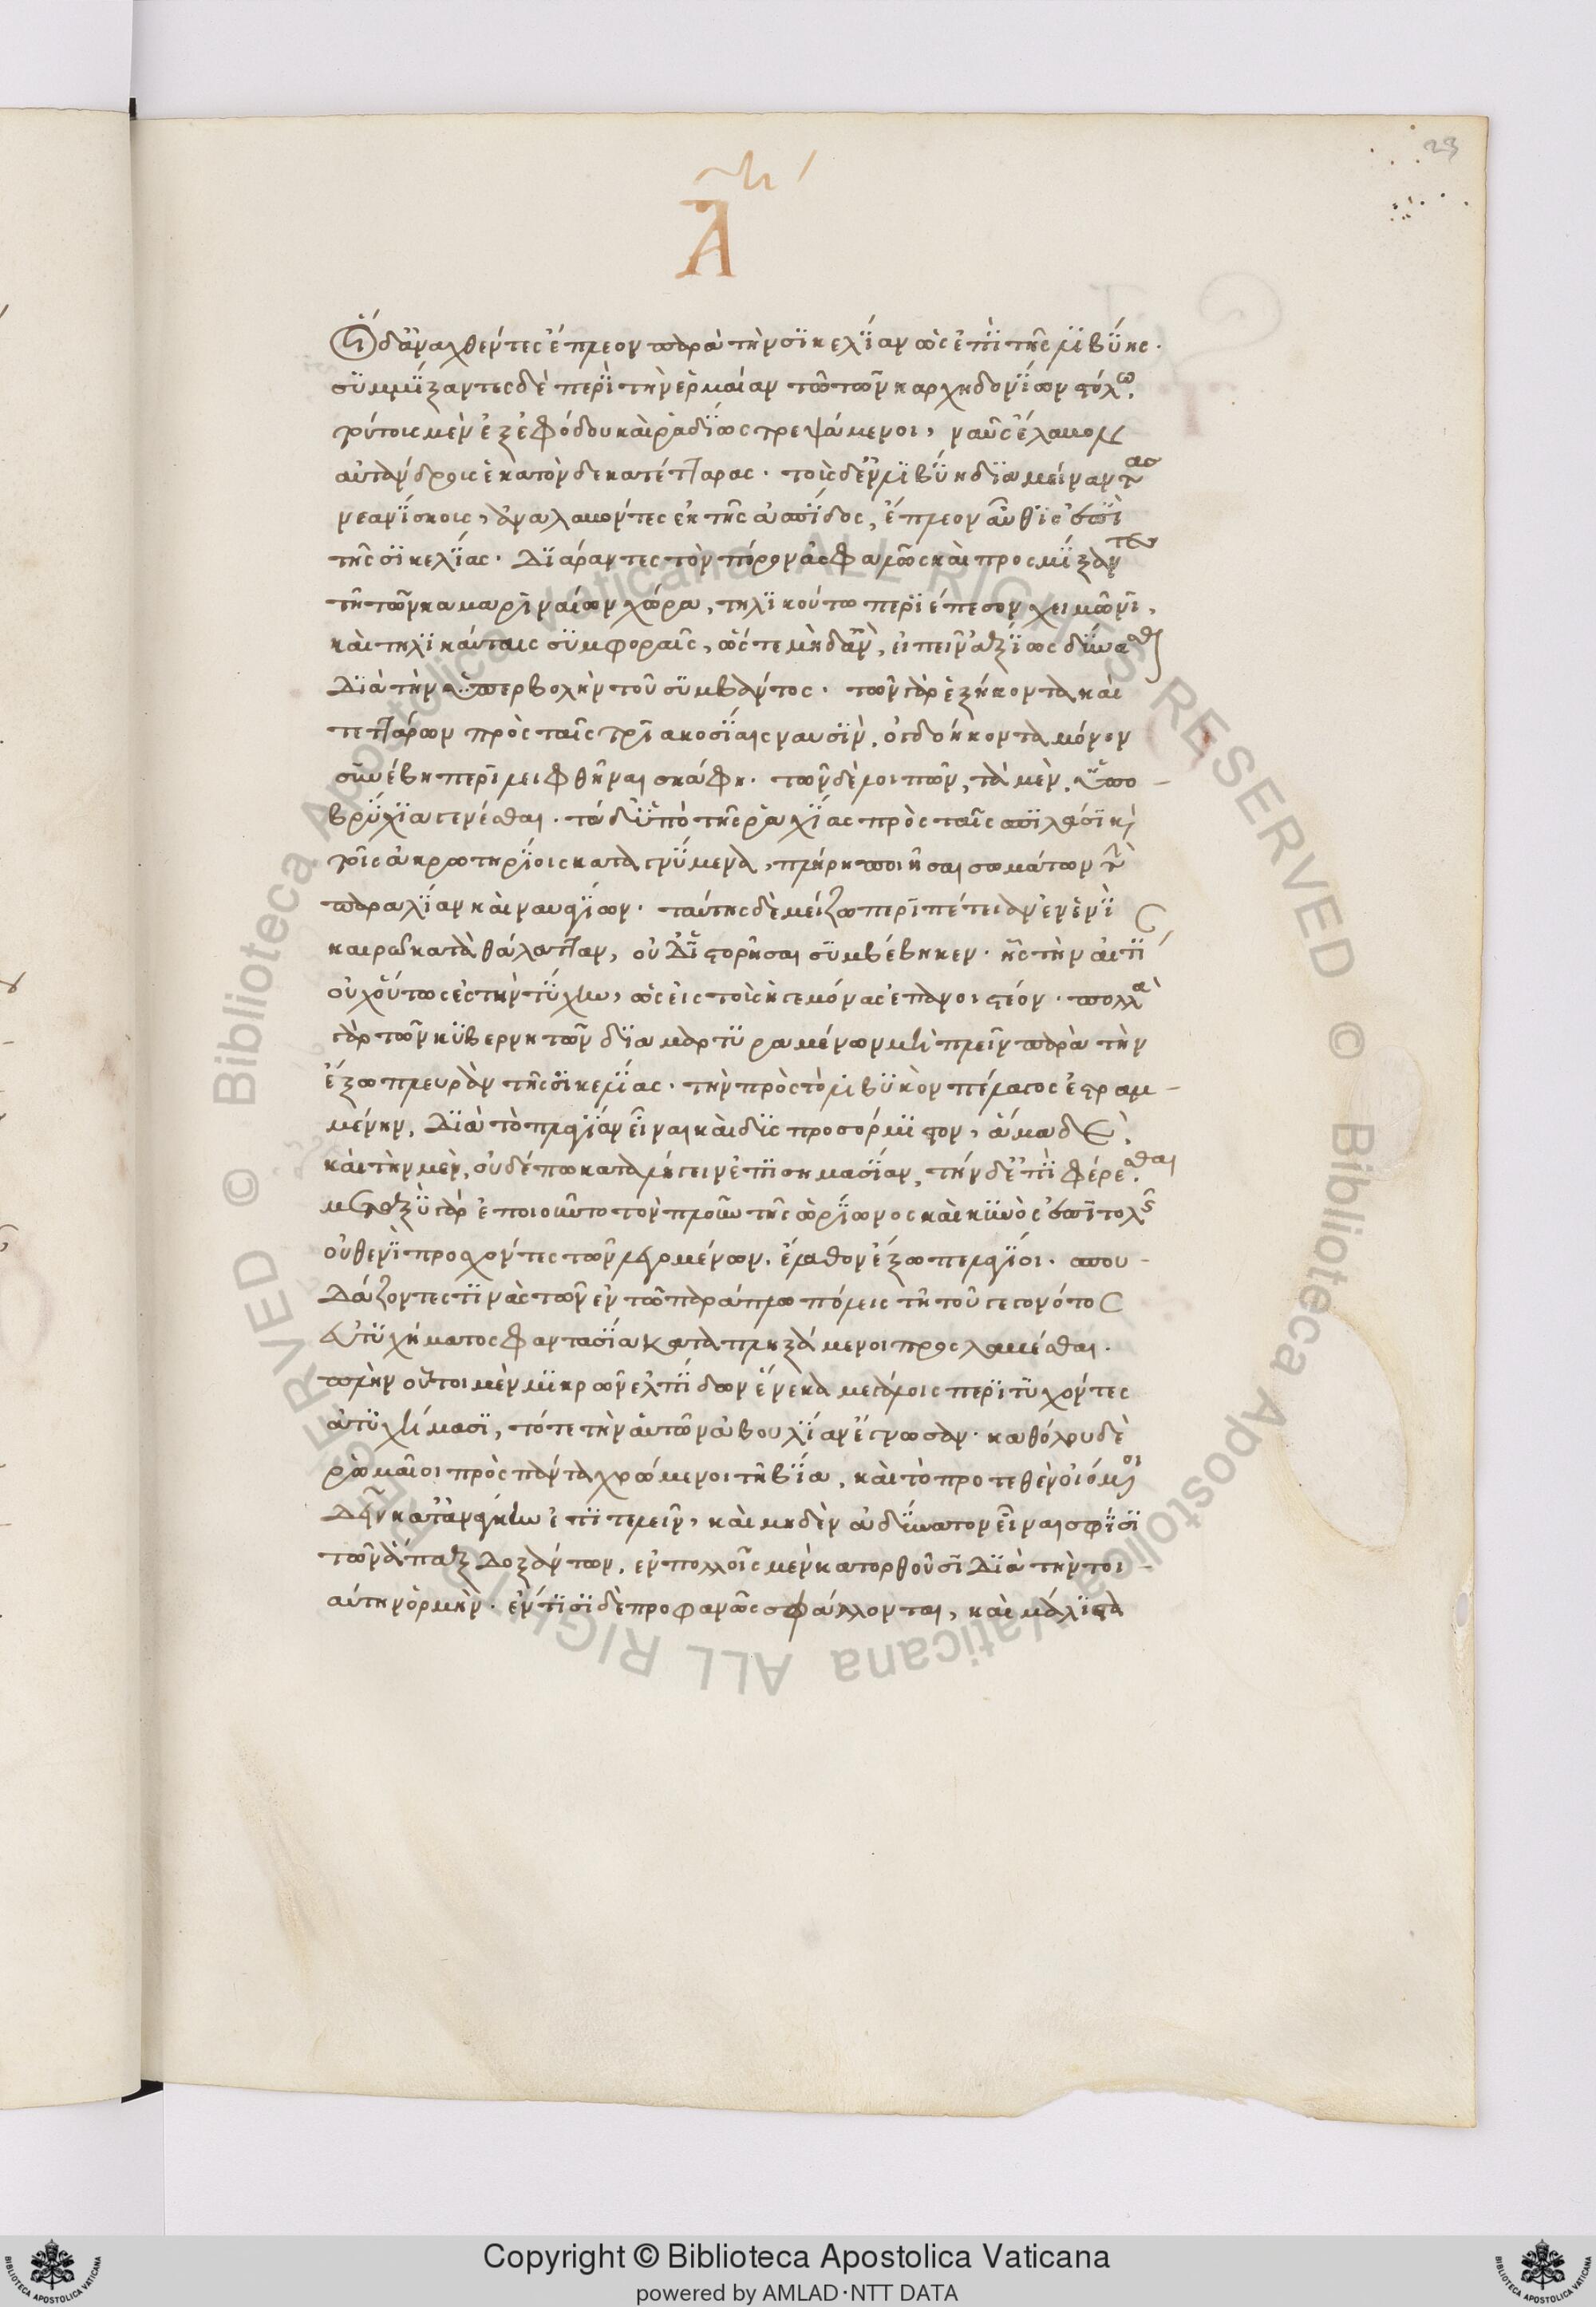 Α
οἱ δ' ἀναχθέντες ἔπλεον παρὰ τὴν σϊκελΐαν ὡς ἐπῒ τῆς λϊβΰης·
συμμΐξαντες δὲ περῒ τὴν ἑρμαίαν τῶ τῶν καρχηδονΐων στόλω,
τούτοις μὲν ἐξ ἐφόδου καὶ ῥαδΐως τρεψάμενοι, ναῦς ἔλαβον
αὐτάνδροις ἑκατὸν δεκατέτταρας· τοῖς δ' ἐν λϊβΰη δϊαμείναντας
νεανΐσκοις, ἀναλαβόντες ἐκ τῆς ἀσπΐδος, ἔπλεον αὖθϊς ἐπῒ
τῆς σϊκελΐας· Δϊάραντες τὸν πόρον ἀσφαλῶς καὶ προςμΐξαντες
τῆ τῶν καμαρϊναίων χώρα, τηλϊκούτω περϊέπεσον χειμῶνϊ,
καὶ τηλϊκαύταις συμφοραῖς, ὥστε μηδ' ἂν, εἰπεῖν ἀξΐως δΰνασθαι
Δϊὰ τὴν ὑπερβολὴν τοῦ συμβάντος· τῶν γὰρ ἑξήκοντα καὶ
τεττάρων πρὸς ταῖς τρϊακοσΐαις ναυσῒν, ὀγδοήκοντα μόνον
συνέβη περϊλειφθῆναι σκάφη· τῶν δὲ λοιπῶν, τὰ μὲν, ὑπο-
βρΰχϊα γενέσθαι· τὰ δ' ὑπὸ τῆς ῥαχΐας πρὸς ταῖς σπϊλάσϊ καὶ
τοῖς ἀκρωτηρΐοις καταγνΰμενα, πλήρη ποιῆσαι σωμάτων τὴν
παραλΐαν καὶ ναυαγΐων· ταύτης δὲ μείζω περϊπέτειαν ἐν ἑνῒ
καιρῶ κατὰ θάλατταν, οὐδ' ἱστορῆσαι συμβέβηκεν· ἧς τὴν αἰτΐ
οὐχ' οὕτως ἐς τὴν τΰχην, ὡς εἰς τοῖς ἡγεμόνας ἐπανοιστέον· πολλὰ
γὰρ τῶν κϋβερνητῶν δϊαμαρτϋραμένων μὴ πλεῖν παρὰ τὴν
ἔξω πλευρὰν τῆς σϊκελΐας· τὴν πρὸς τὸ λϊβϋκὸν πέλαγος ἐστραμ-
μένην, Δϊὰ τὸ πλαγΐαν εἶναι καὶ δϋςπροσόρμϊστον, ἅμα δὲ,
καὶ τὴν μὲν, οὐδέπω καταλήγειν ἐπϊσημασΐαν, τὴν δ' ἐπϊφέρεσθαι,
μεταξῢ γὰρ ἐποιοῦντο τὸν πλοῦν τῆς ὠρΐωνος καὶ κϋνὸς ἐπϊτολῆς
οὐθενῒ προσχόντες τῶν λεγομένων, ἔλαθον ἔξω πελαγΐοι· σπου-
Δάζοντες τϊνὰς τῶν ἐν τῶ παράπλω πόλεις τῆ τοῦ γεγονότος
εὐτϋχήματος φαντασΐα καταπληξάμενοι προςλαβέσθαι·
πλὴν οὗτοι μὲν μϊκρῶν ἐλπΐδων ἕνεκα μεγάλοις περϊτϋχόντες
ἀτϋχήμασϊ, τότε τὴν αὑτῶν ἀβουλΐαν ἔγνωσαν· καθόλου δὲ
ῥωμαῖοι πρὸς πάντα χρώμενοι τῆ βΐα, καὶ τὸ προτεθὲν οἰόμενοι
Δεῖν κατ' ἀνάγκην ἐπϊτελεῖν, καὶ μηδὲν ἀδΰνατον εἶναι σφΐσϊ
τῶν ἅπαξ Δοξάντων, ἐν πολλοῖς μὲν κατορθοῦσϊ Δϊὰ τὴν τοι-
αύτην ὁρμὴν· ἐν τϊσῒ δὲ προφανῶς σφάλλονται, καὶ μάλϊστα